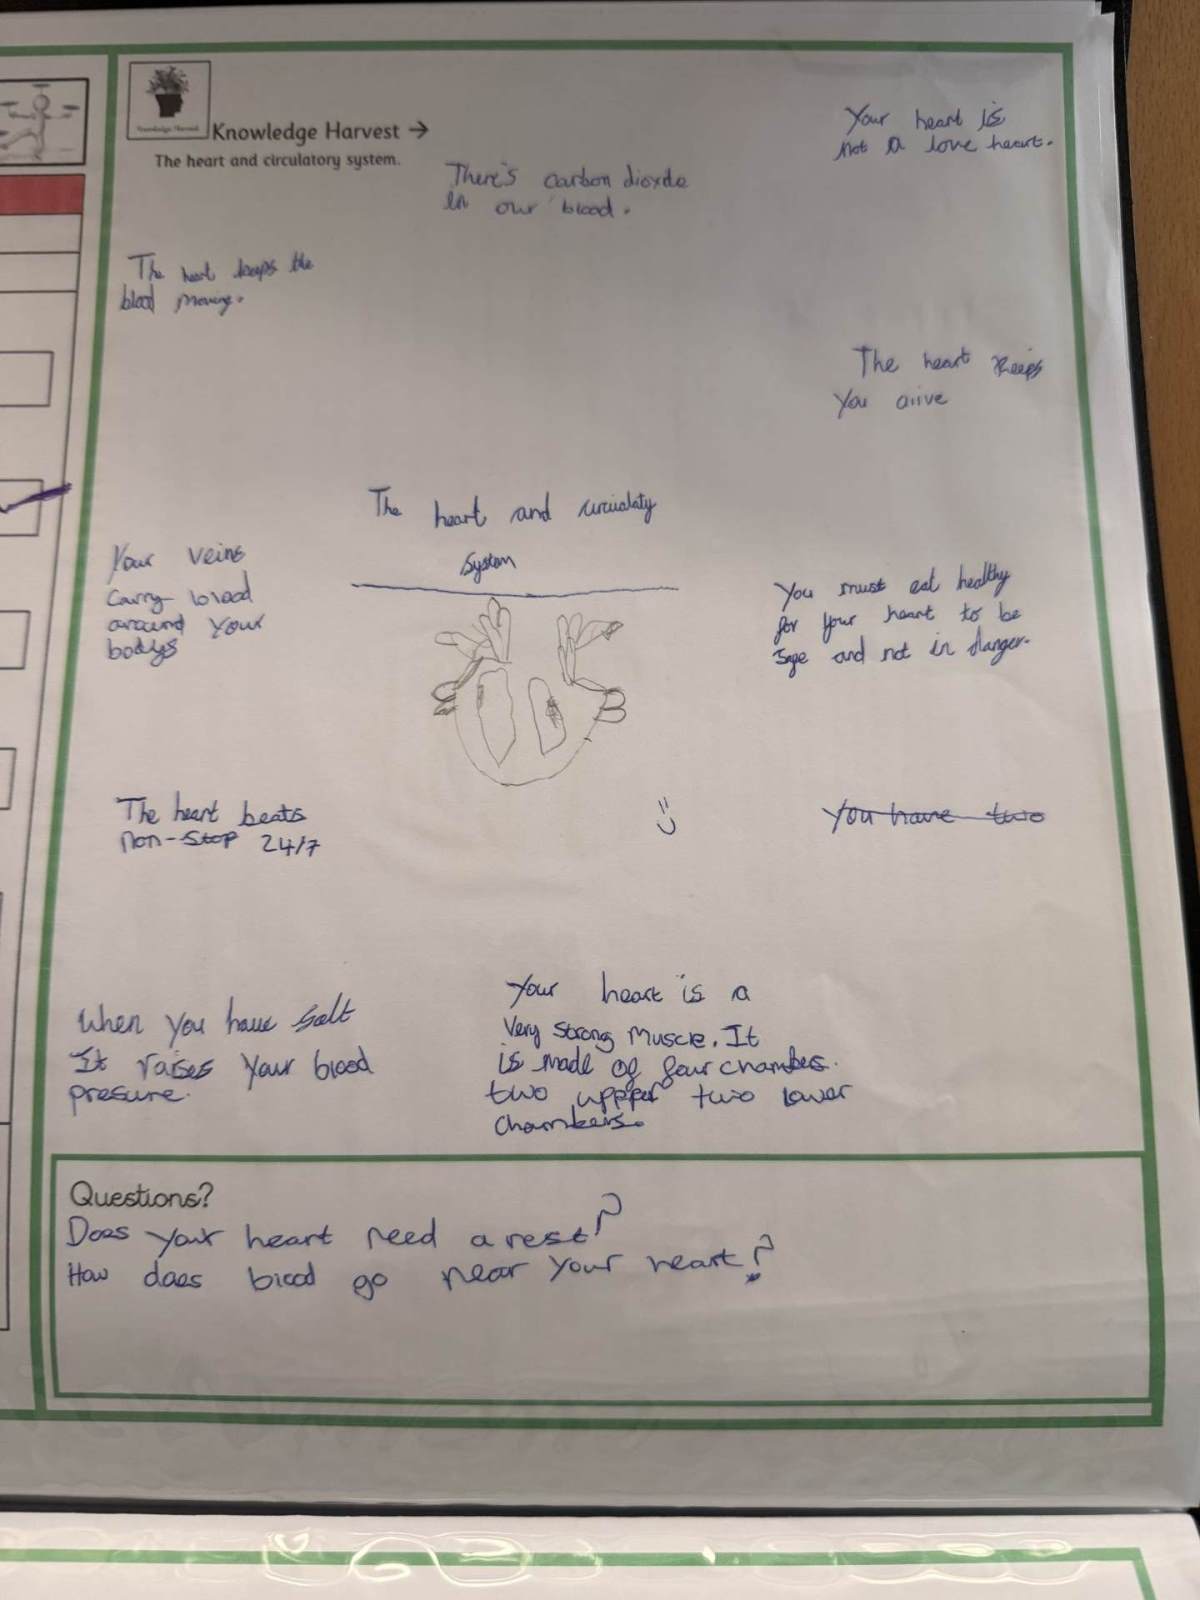 Knowledge Harvest
Knowledge Harvest →
The heart and circulatory system.
Your heart is
not a love heart.
There's carbon dioxde
in our blood.
The heart keeps the
blood moving.
The heart keeps
you alive
The heart and
system
Your veins
carry blood
around your
bodys
You must eat healthy
for your heart to be
safe and not in danger.
The heart beats
non-stop 24/7
You have two
When you have salt
It raises your blood
presure.
Your heart is a
very strong muscle. It
is made of four chambers.
two uppper two lower
chambers.
Questions?
Does your heart need a rest?
How does blood go near your heart?